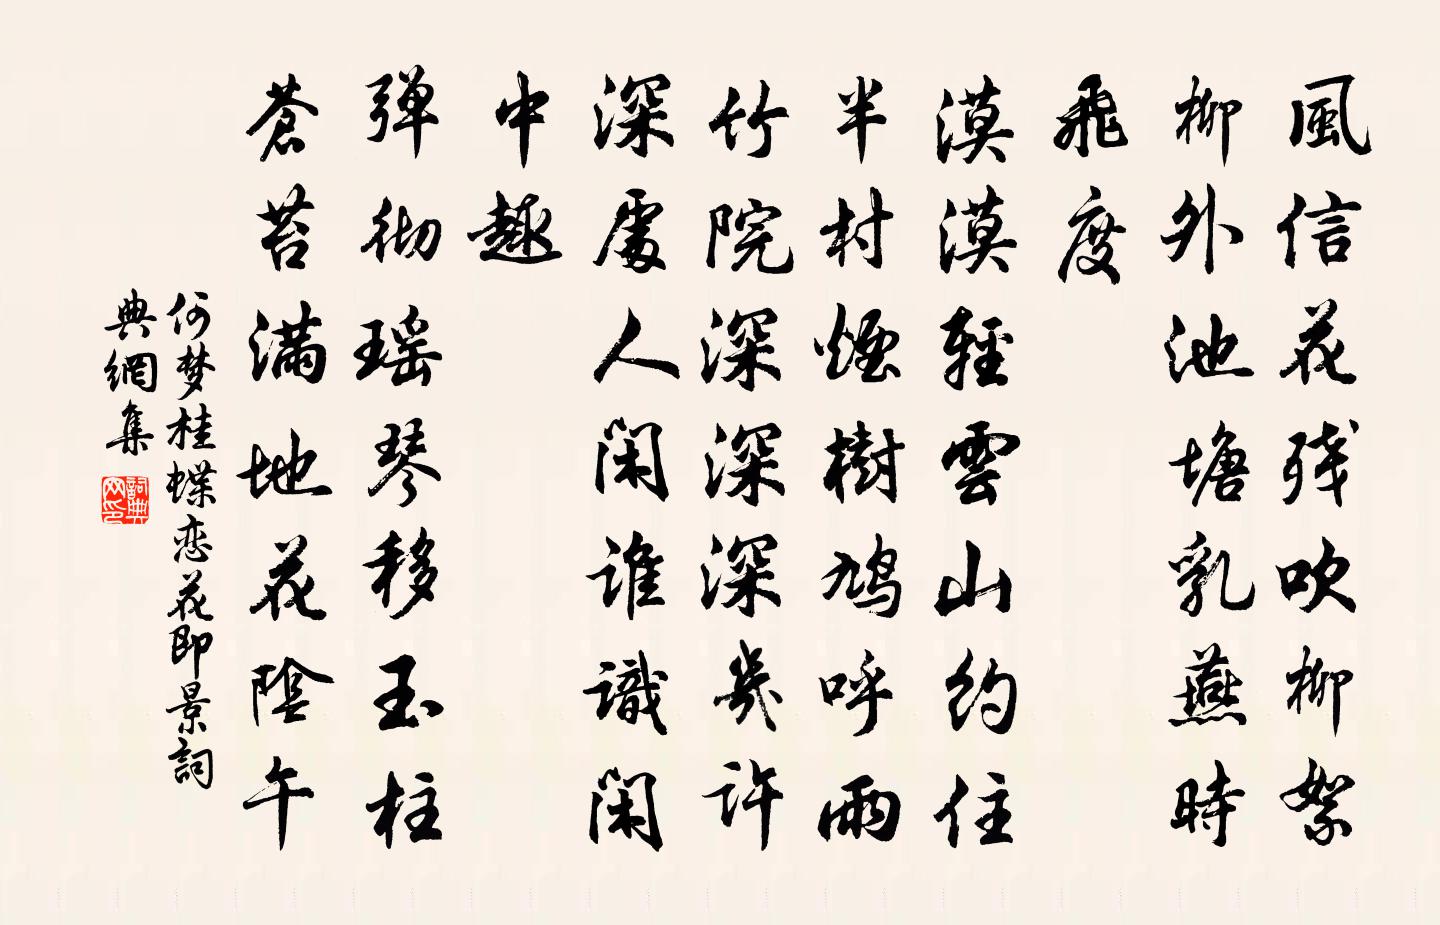 風信花残吹柳絮
柳外池塘乳燕時
飛度
漠漠輕雲山約住
半村煙樹鳩呼雨
竹院深深深幾許
深處人閑誰識閑
中趣
弹彻瑶琴移玉柱
蒼苔满地花陰午
何梦桂蝶恋花即景詞
典網集
詞典网印